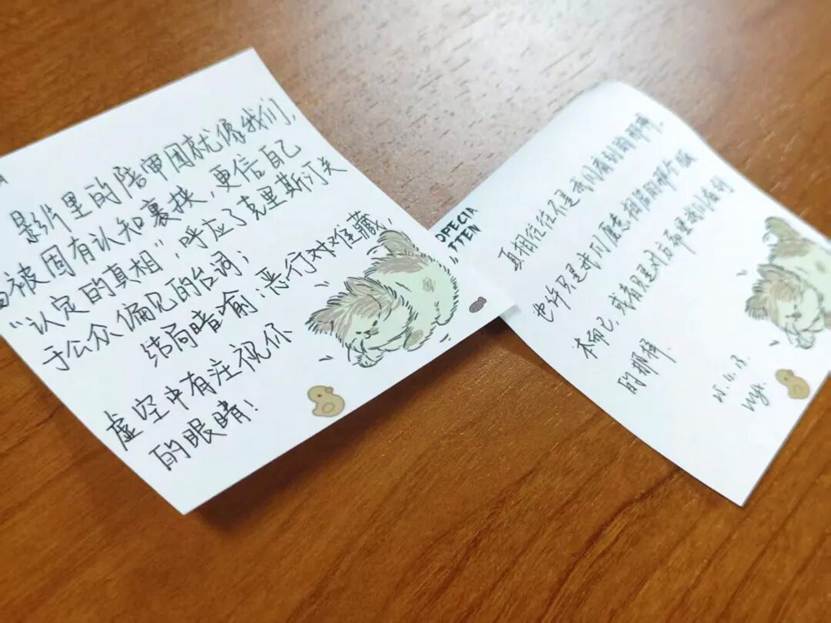 影片里的陪审团就像我们,
被固有认知裹挟,更信自己
“认定的真相”,呼应了克里斯汀关
于公众偏见的台词;
结局暗喻:恶行难藏,
虚空中有注视你
的眼睛!
OPECIA
TTEN
真相往往不是我们看到的那样,
也许只是我们愿意相信的那个版
本而已,或者只是对方希望我们看到
的那样.